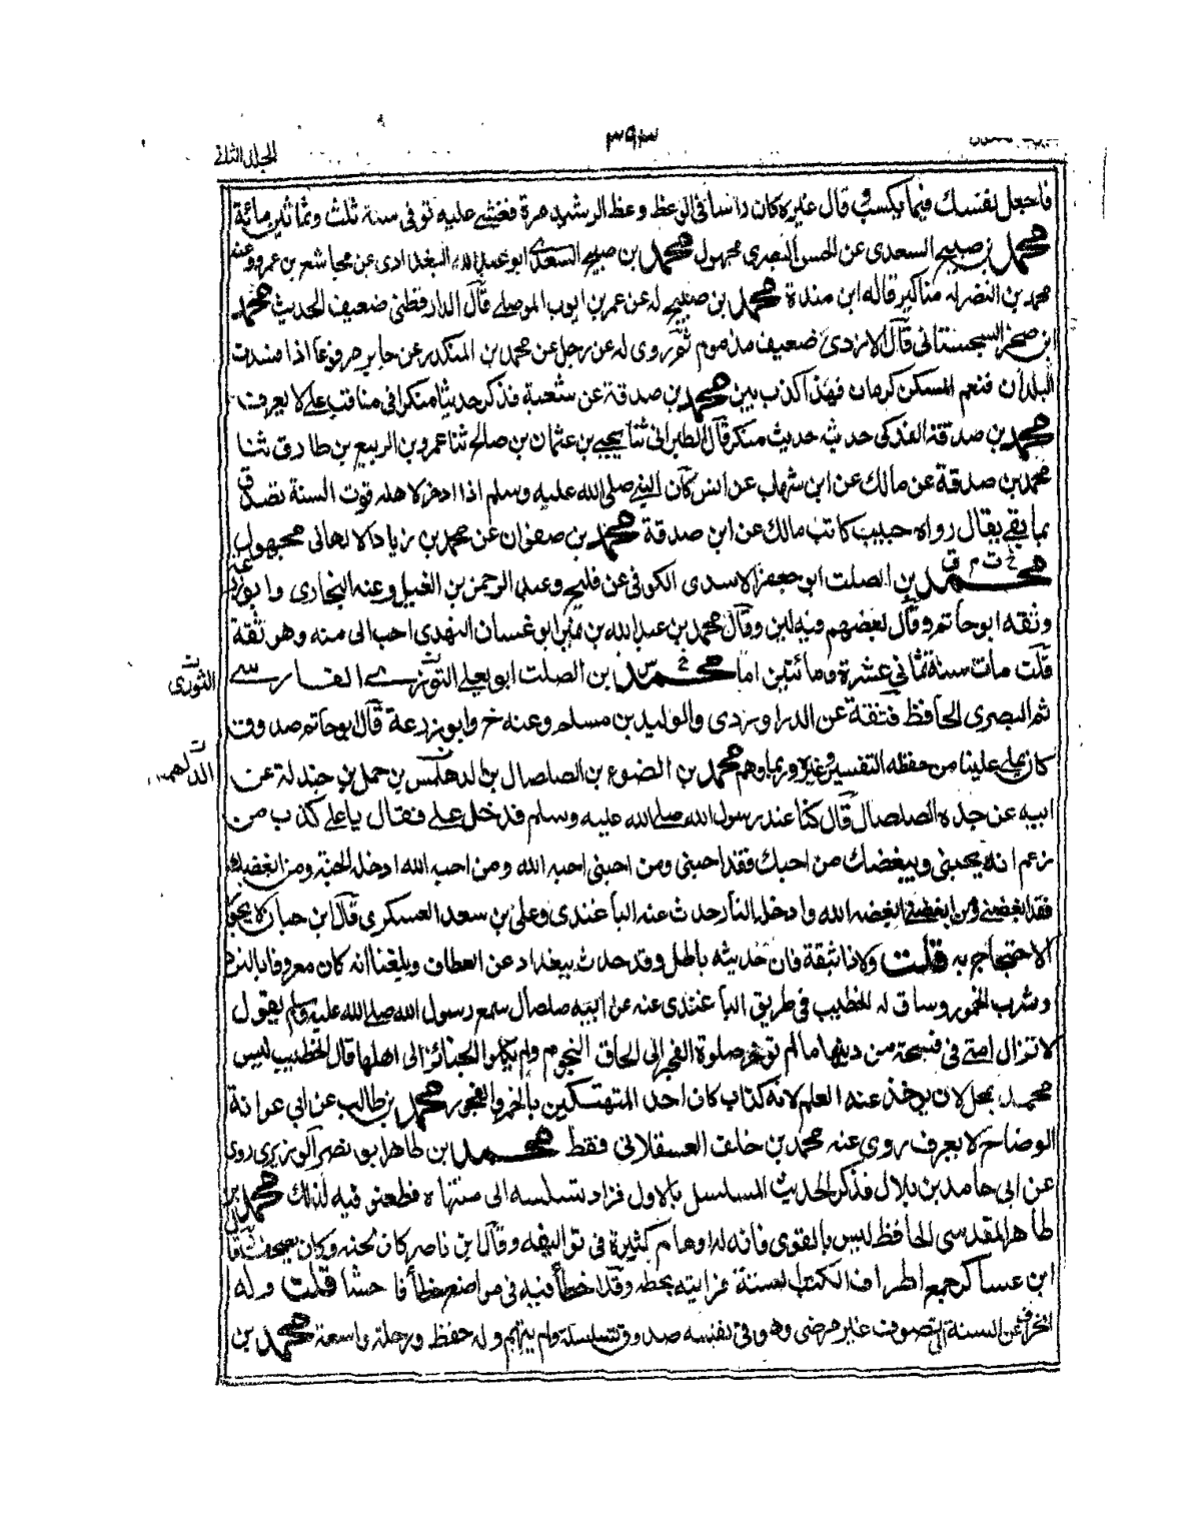 المجلد الثانی
۳۹۳
فاجعل نفسك فيما يكسب قال غيره كان راسا فى الوعظ وعظ الرشيد مرة فغشى عليه توفى سنة ثلث وثمانين ومائة
محمد بن صبيح السعدى عن الحسن البصرى مجهول محمد بن صبيح السعدى ابو عبد الله البغدادى عن مجاشع بن عمرو وعنه
محمد بن النضر له مناكير قاله ابن مندة محمد بن صبيح له عن عمر بن ايوب الموصلى قال الدارقطنى ضعيف الحديث محمد
ابن صخر السجستانى قال الازدى ضعيف مذموم ثم روى له عن رجل عن محمد بن المنكدر عن جابر مرفوعا اذا
البلدان فنعم المسكن كرمان فهذا كذب بين محمد بن صدقة عن شعبة فذكر حديثا منكرا فى مناقب على لا يعرف
محمد بن صدقة الفدكى حديثه حديث منكر قال الطبرانى ثنا يحيى بن عثمان بن صالح ثنا عمرو بن الربيع بن طارق ثنا
محمد بن صدقة عن مالك عن ابن شهاب عن انس كان النبى صلى الله عليه وسلم اذا ادخر لاهله قوت السنة تصدق
بما بقى يقال رواه حبيب كاتب مالك عن ابن صدقة محمد بن صفوان عن محمد بن زياد الالهانى مجهول
محمد بن الصلت ابو جعفر الاسدى الكوفى عن فليح وعبد الرحمن بن الغسيل وعنه البخارى وابو زرعة
وثقه ابو حاتم وقال بعضهم فيه لين وقال محمد بن عبد الله بن نمير ابو غسان النهدى احب الى منه وهو ثقة
قلت مات سنة ثمانى عشرة ومائتين اما محمد بن الصلت ابو يعلى التوزى الفارسى
ثم البصرى الحافظ فثقة عن الدراوردى والوليد بن مسلم وعنه خ وابو زرعة قال ابو حاتم صدوق
كان يملى علينا من حفظه التفسير وغيره وربما وهم محمد بن الضوء بن الصلصال بن الدلهمس بن حمل بن جندلة عن
ابيه عن جده الصلصال قال كنا عند رسول الله صلى الله عليه وسلم فدخل على فقال يا على كذب من
زعم انه يحبنى ويبغضك من احبك فقد احبنى ومن احبنى احبه الله ومن احبه الله ادخله الجنة ومن ابغضك
فقد ابغضنى ومن ابغضنى ابغضه الله وادخله النار حدث عنه الباغندى وعلى بن سعد العسكرى قال ابن حبان لا يجوز
الاحتجاج به قلت ولا ذا بثقة فان حديثه باطل وقد حدث ببغداد عن العطاف ويلغنا انه كان معروفا بالزور
وشرب الخمور وساق له الخطيب فى طريق الباغندى عنه عن ابيه صلصال سمع رسول الله صلى الله عليه وسلم يقول
لا تزال امتى فى فسحة من دينها ما لم تؤخر صلوة الفجر الى لحاق النجوم ولم يكلوا الجنائز الى اهلها قال الخطيب ليس
محمد بمحل لان يؤخذ عنه العلم لانه كذاب كان احد المتهتكين بالخمر والفجور محمد بن طالب عن ابى عوانة
الوضاح لا يعرف روى عنه محمد بن خلف العسقلانى فقط محمد بن طاهر ابو نصر الوزيرى روى
عن ابى حامد بن بلال فذكر الحديث المسلسل بالاول فزاد تسلسله الى منتهاه فطعنو فيه لذلك محمد بن
طاهر المقدسى الحافظ ليس بالقوى فانه له اوهام كثيرة فى تواليفه وقال ابن ناصر كان لحنه وكان يصحف قال
ابن عساكر جمع اطراف الكتب الستة فرايته بخطه وقد اخطأ فيه فى مواضع خطأ فاحشا قلت وله
انحراف عن السنة الى تصوف غير مرضى وهو فى نفسه صدوق لم يتهم وله حفظ ورحلة واسعة محمد بن
الثورى